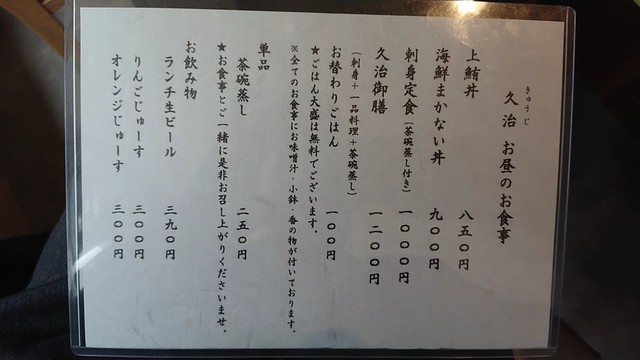 きゅうじ
久治 お昼のお食事
上鮪丼 八五〇円
海鮮まかない丼 九〇〇円
刺身定食(茶碗蒸し付き) 一〇〇〇円
久治御膳 一二〇〇円
(刺身+一品料理+茶碗蒸し)
お替わりごはん 一〇〇円
★ごはん大盛は無料でございます。
※全てのお食事にお味噌汁・小鉢 香の物が付いております。
単品
茶碗蒸し 二五〇円
★お食事とご一緒に是非お召し上がりくださいませ。
お飲み物
ランチ生ビール 三九〇円
りんごじゅーす 三〇〇円
オレンジじゅーす 三〇〇円